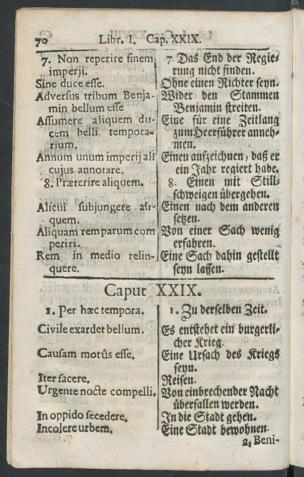 70 Libr. I. Cap. XXIX.
7. Non reperire finem
imperij.
Sine duce esse.
Adversus tribum Benja-
min bellum esse
Assumere aliquem du-
cem belli tempora-
rium.
Annum unum imperij ali
cujus annotare.
8. Præterire aliquem.
Alicui subjungere ali-
quem.
Aliquam rem parum com
periri.
Rem in medio relin-
quere.
7. Das End der Regie-
rung nicht finden.
Ohne einen Richter seyn.
Wider den Stammen
Benjamin streiten.
Eine für eine Zeitlang
zum Heerführer anneh-
men.
Einen aufzeichnen, daß er
ein Jahr regiert habe.
8. Einen mit Still-
schweigen übergehen.
Einen nach dem anderen
setzen.
Von einer Sach wenig
erfahren.
Eine Sach dahin gestellt
seyn lassen.
Caput XXIX.
1. Per hæc tempora.
Civile exardet bellum.
Causam motûs esse.
Iter facere.
Urgente nocte compelli.
In oppido secedere.
Incolere urbem.
1. Zu derselben Zeit.
Es entstehet ein burgerli-
cher Krieg.
Eine Ursach des Kriegs
seyn.
Reisen.
Von einbrechender Nacht
überfallen werden.
In die Stadt gehen.
Eine Stadt bewohnen.
2. Beni-